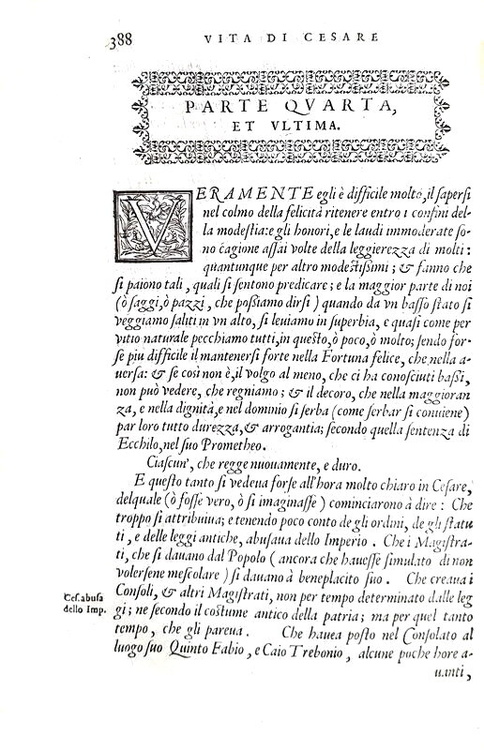 388
VITA DI CESARE
PARTE QVARTA,
ET VLTIMA.
VERAMENTE egli è difficile molto, il saperſi
nel colmo della felicità ritenere entro i confini del-
la modeſtia: e gli honori, e le laudi immoderate ſo-
no cagione aſſai volte della leggierezza di molti:
quantunque per altro modeſtiſsimi; & fanno che
ſi paiono tali, quali ſi ſentono predicare; e la maggior parte di noi
(ò ſaggi, ò pazzi, che poſsiamo dirſi) quando da vn baſſo ſtato ſi
veggiamo ſaliti in vn alto, ſi leuiamo in ſuperbia, e quaſi come per
vitio naturale pecchiamo tutti, in queſto, ò poco, ò molto; ſendo for-
ſe piu difficile il mantenerſi forte nella Fortuna felice, che nella a-
uerſa: & ſe così non è, il volgo al meno, che ci ha conoſciuti baſsi,
non può vedere, che regniamo; & il decoro, che nella maggioran
za, e nella dignità, e nel dominio ſi ſerba (come ſerbar ſi conuiene)
par loro tutto durezza, & arrogantia; ſecondo quella ſentenza di
Ecchilo, nel ſuo Prometheo.
Ciaſcun', che regge nuouamente, e duro.
E queſto tanto ſi vedeua forſe all'hora molto chiaro in Ceſare,
delquale (ò foſſe vero, ò ſi imaginaſſe) cominciarono à dire: Che
troppo ſi attribuiua; e tenendo poco conto de gli ordini, de gli ſtatu
ti, e delle leggi antiche, abuſaua dello Imperio. Che i Magiſtra-
ti, che ſi dauano dal Popolo (ancora che haueſſe ſimulato di non
volerſene meſcolare) ſi dauano à beneplacito ſuo. Che creaua i
Conſoli, & altri Magiſtrati, non per tempo determinato dalle leg
gi; ne ſecondo il coſtume antico della patria; ma per quel tanto
tempo, che gli pareua. Che hauea poſto nel Conſolato al
luogo ſuo Quinto Fabio, e Caio Trebonio, alcune poche hore a-
uanti,
Ceſ. abuſa
dello Imp.